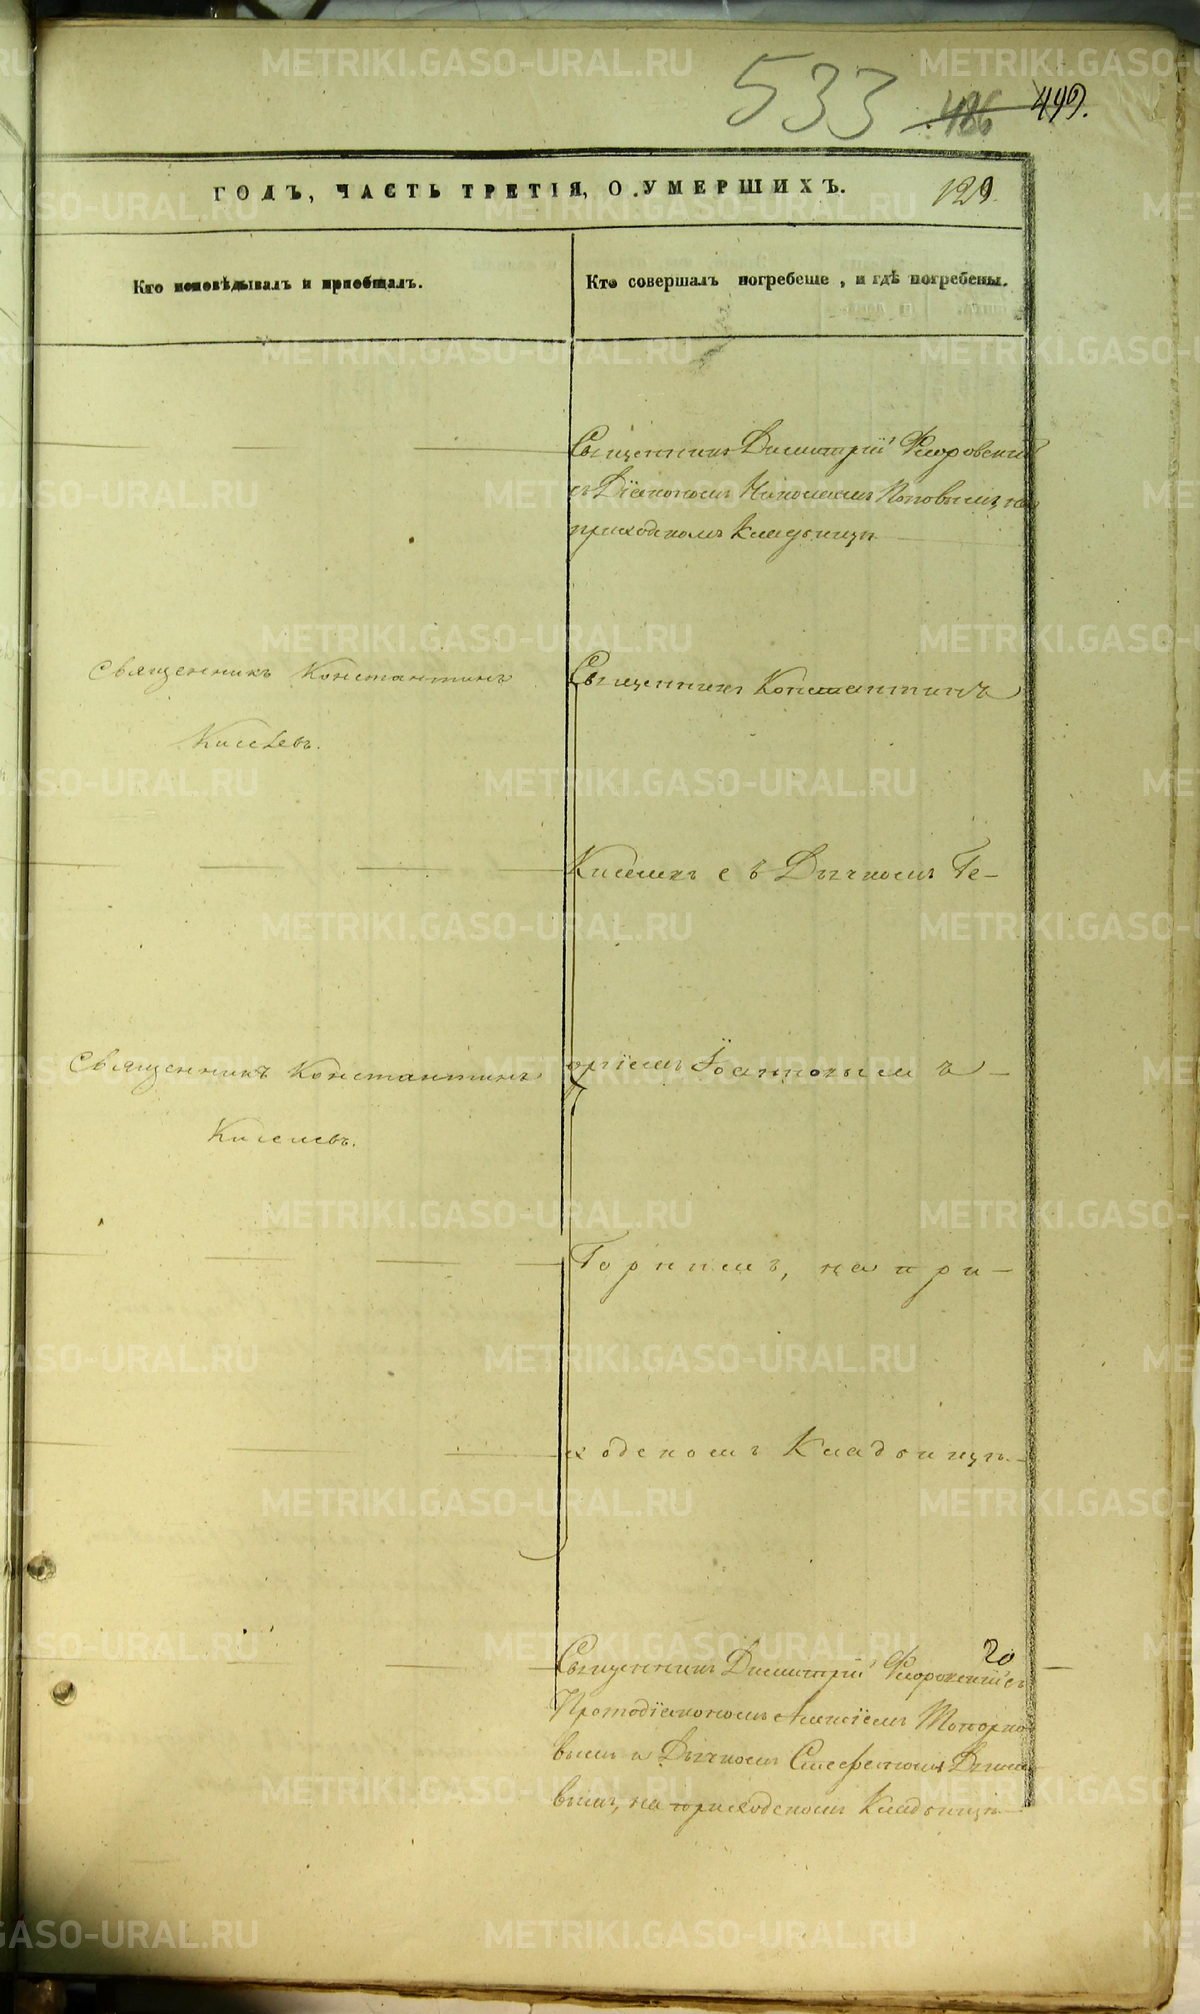 533 486 499.
ГОДЪ, ЧАСТЬ ТРЕТІЯ, О УМЕРШИХЪ. 129.
Кто исповѣдывалъ и пріобщалъ.
Кто совершалъ погребеніе, и гдѣ погребены.
Священникъ Димитрій Флоровскій
съ Діакономъ Николаемъ Поповымъ, на
приходскомъ Кладбищѣ
Священникъ Константинъ
Киселевъ.
Священникъ Константинъ
Киселевъ съ Дьячкомъ Ге-
Священникъ Константинъ
Киселевъ.
оргіемъ Іоанновымъ
Горнимъ, на при-
ходскомъ Кладбищѣ.
Священникъ Димитрій Флоровскій съ
Протодіакономъ Топорко-
вымъ и Дьячкомъ Стефаномъ
вымъ, на приходскомъ Кладбищѣ
METRIKI.GASO-URAL.RU